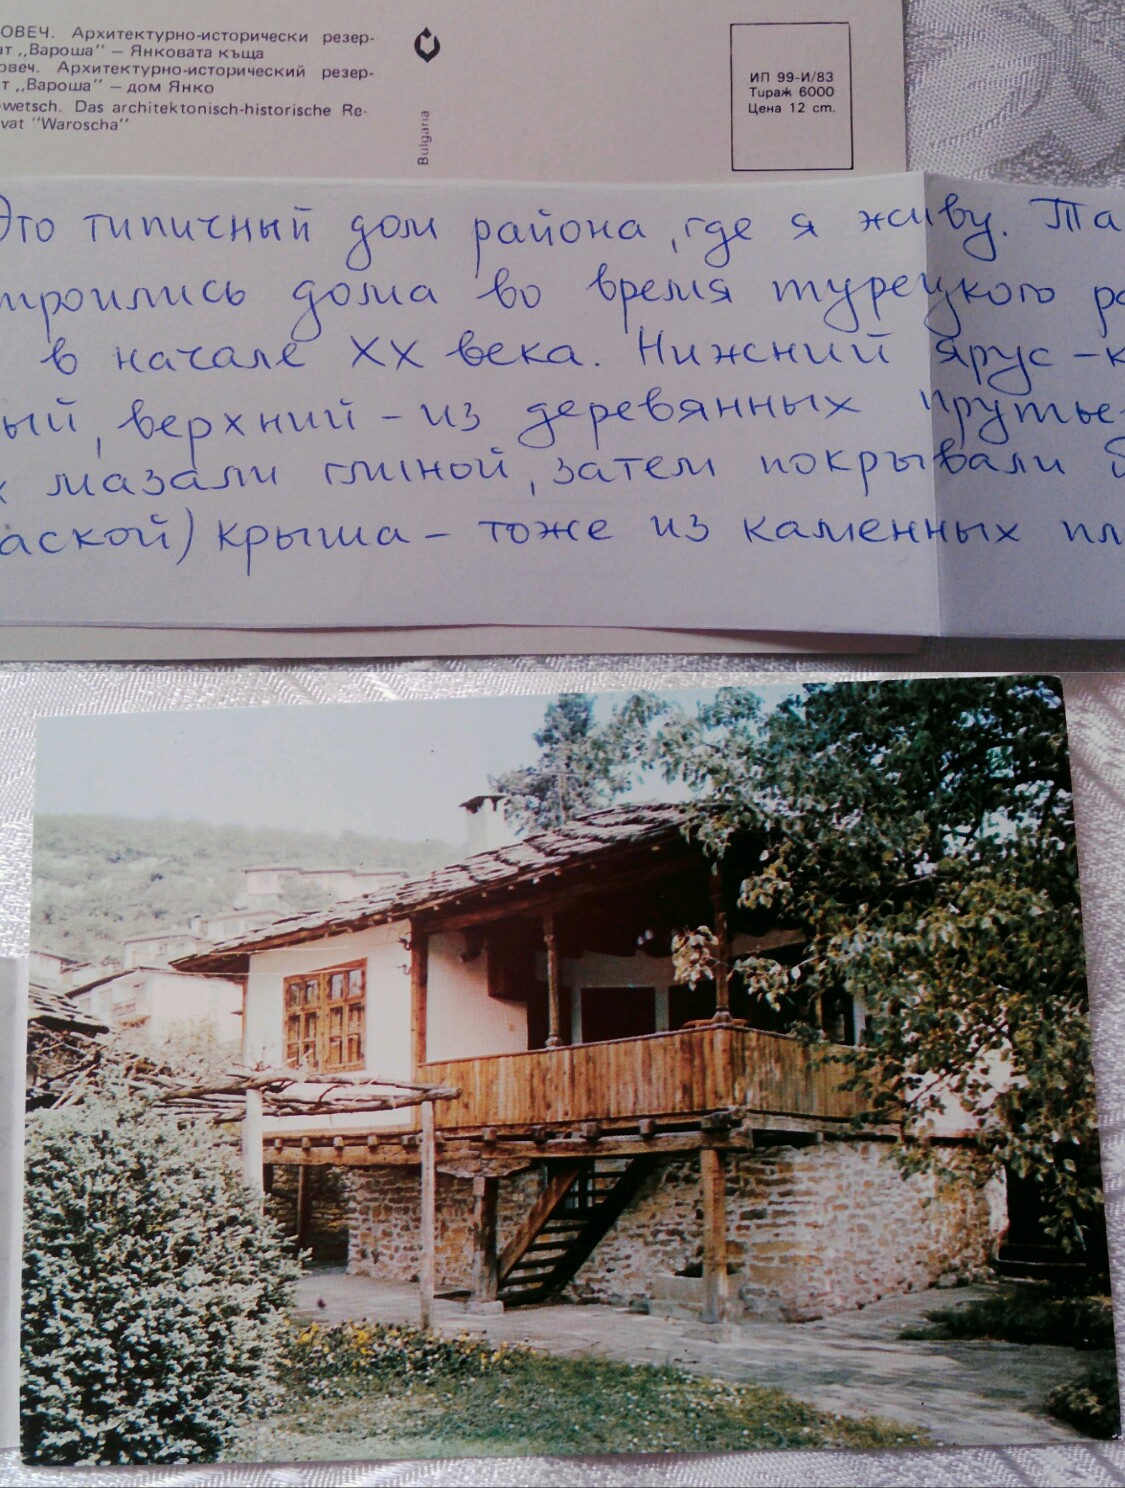 ОВЕЧ. Архитектурно-исторически резер-
ат „Вароша" – Янковата къща
овеч. Архитектурно-исторический резер-
т „Вароша" – дом Янко
wetsch. Das architektonisch-historische Re-
vat "Waroscha"
Bulgaria
ИП 99-И/83
Тираж 6000
Цена 12 ст.
Это типичный дом района, где я живу. Та
троились дома во время турецкого ра
в начале XX века. Нижний ярус – к
ый, верхний – из деревянных прутье
х мазали глиной, затем покрывали б
аской) крыша – тоже из каменных пл